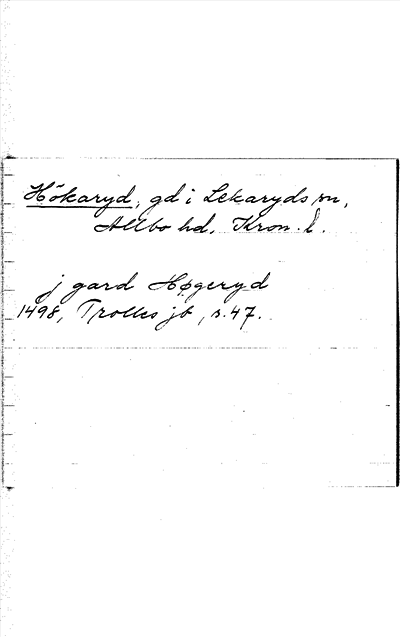 Hökaryd, gd i Lekaryds sn,
Allbo hd. Kron. l.
j gard Høgeryd
1498, Trolles jb, s. 47.